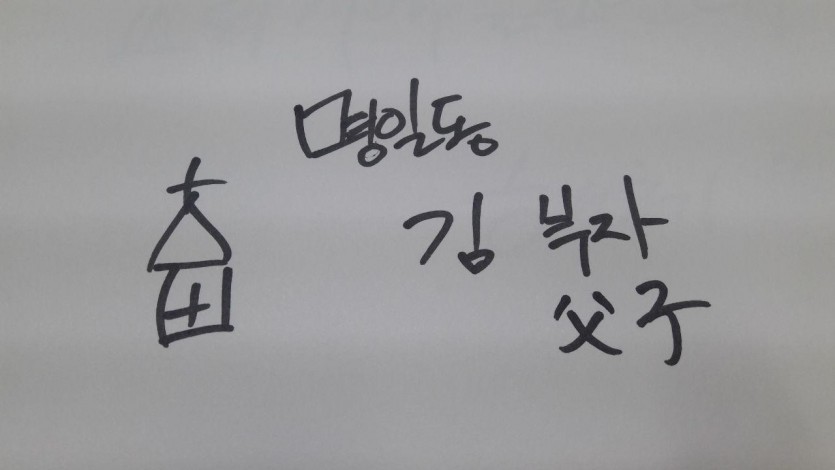 명일동
김 부자
父子